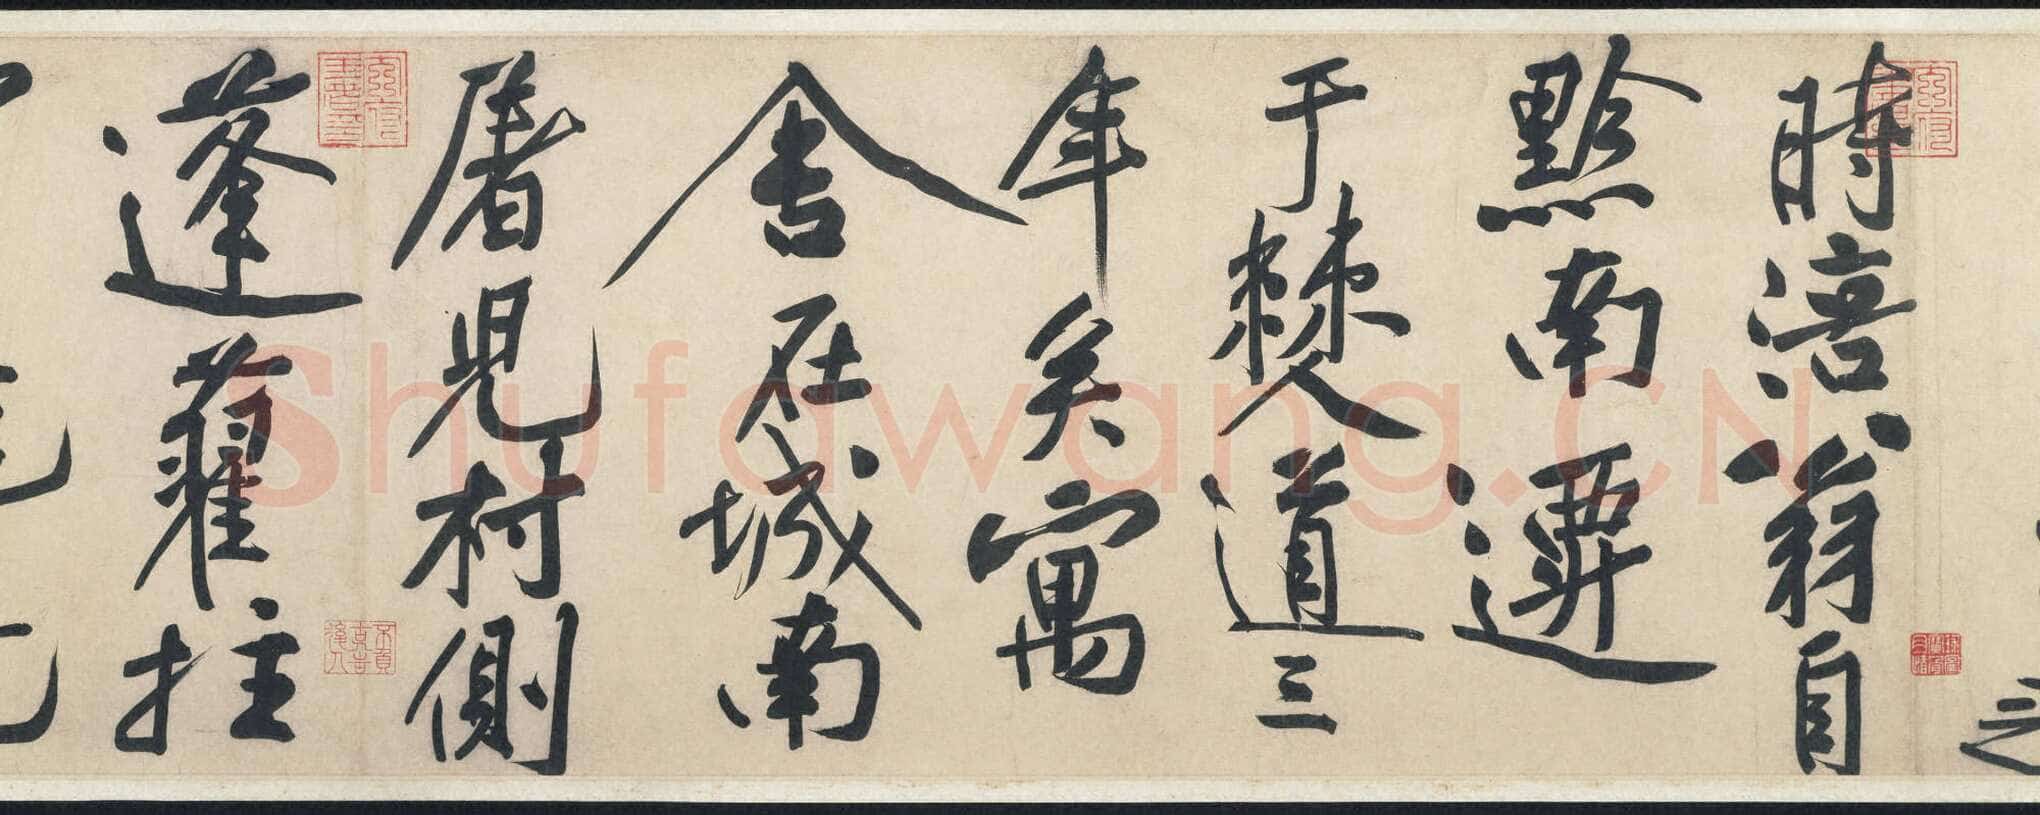 時涪翁自
黔南遷
于僰道三
年矣寓
舍在城南
屠兒村側
蓬藋拄
Shufawang.CN